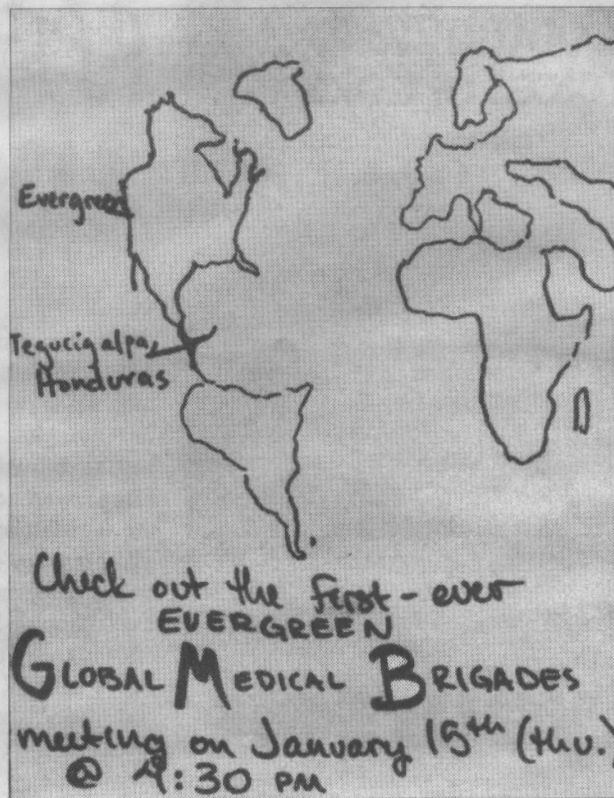 Evergreen
Tegucigalpa,
Honduras
Check out the first-ever
EVERGREEN
GLOBAL MEDICAL BRIGADES
meeting on January 15th (thu.)
@ 4:30 PM